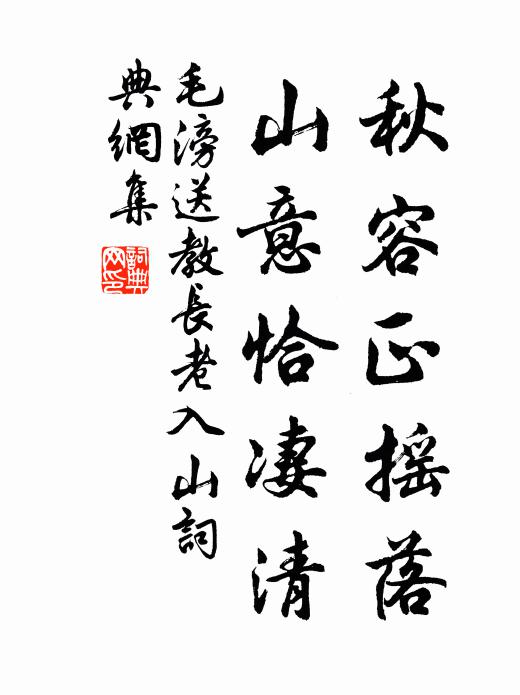 秋容正摇落
山意恰凄清
毛滂送教長老入山詞
典網集
詞典
网印